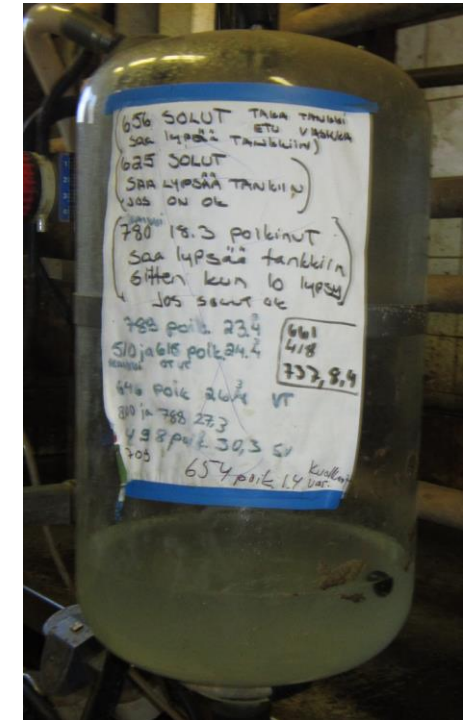 656 SOLUT TAKA TANKKI
ETU VASKKA
(saa lypsää TANKKIIN)
625 SOLUT
SAA LYPSÄÄ TANKIIN
JOS ON OK
780 18.3 poikinut
saa lypsää tankkiin
sitten kun 10 lypsy
JOS SOLUT OK
789 poik. 23.4
510 ja 615 poik 24.4
646 poik 26.4 VT
810 ja 788 27.3
498 poik 30,3 SV
709
654 poik 1.4 Kuollut vas.
661
418
737, 8,4